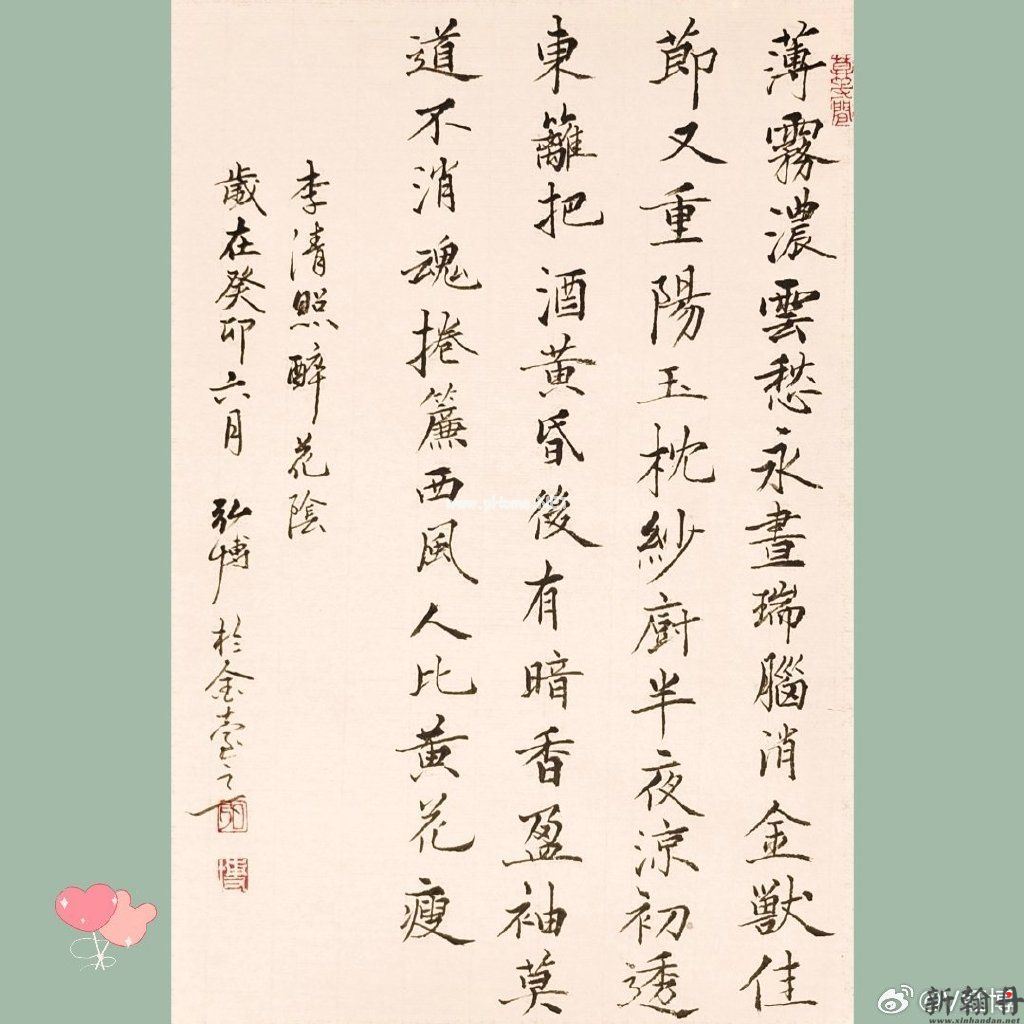 薄霧濃雲愁永晝瑞腦消金獸佳
節又重陽玉枕紗廚半夜涼初透
東籬把酒黃昏後有暗香盈袖莫
道不消魂捲簾西風人比黃花瘦
李清照醉花陰
歲在癸卯六月 弘博於金臺之
新翰丹
www.xinhandan.net